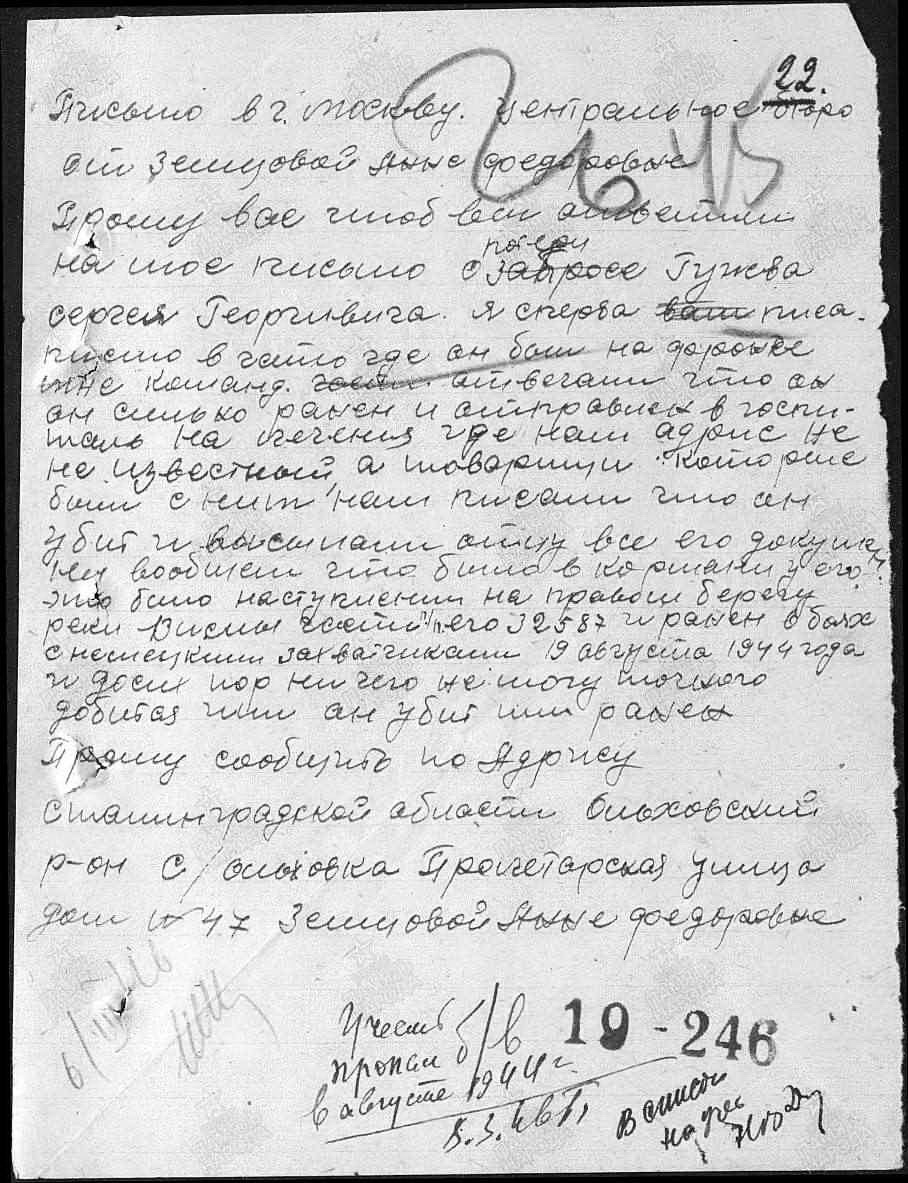 22.
Письмо в г. Москву. Центральное бюро
от Земцовой Анне Федоровне
Прошу вас чтоб вы ответили
на мое письмо о
розыске Гужева
Сергея Георгивича. я сперва вам писа.
письмо в часть где он был на
мне команд. части отвечали что он
он сильно ранен и отправлен в госпи-
таль на лечения где нам адрис не
не известный а товарищи которые
были с ним нам писали что он
убит и выслали отцу все его докуме
нты вообщем что было в кармани у его
это было наступлении на правом берегу
реки Вислы части п/п его 32587 и ранен в боях
с немецкими захватчиками 19 августа 1944 года
и досих пор ни чего не могу точного
добится или он убит или ранен
Прошу сообщить по Адрису
Сталинградской области Ольховский
р-он С/Ольховка Пролетарская улица
дом № 47 Земцовой Анне Федоровне
6/III-46
Учесть
пропал б/в
в августе 1944 г.
8.3.46 г.
19-246
В список